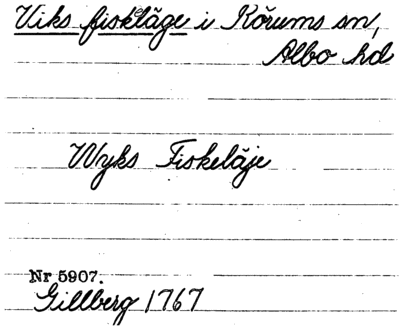 Viks fiskläge i Rörums sn,
Albo hd
Wyks Fiskeläje
Nr 5907.
Gillberg 1767